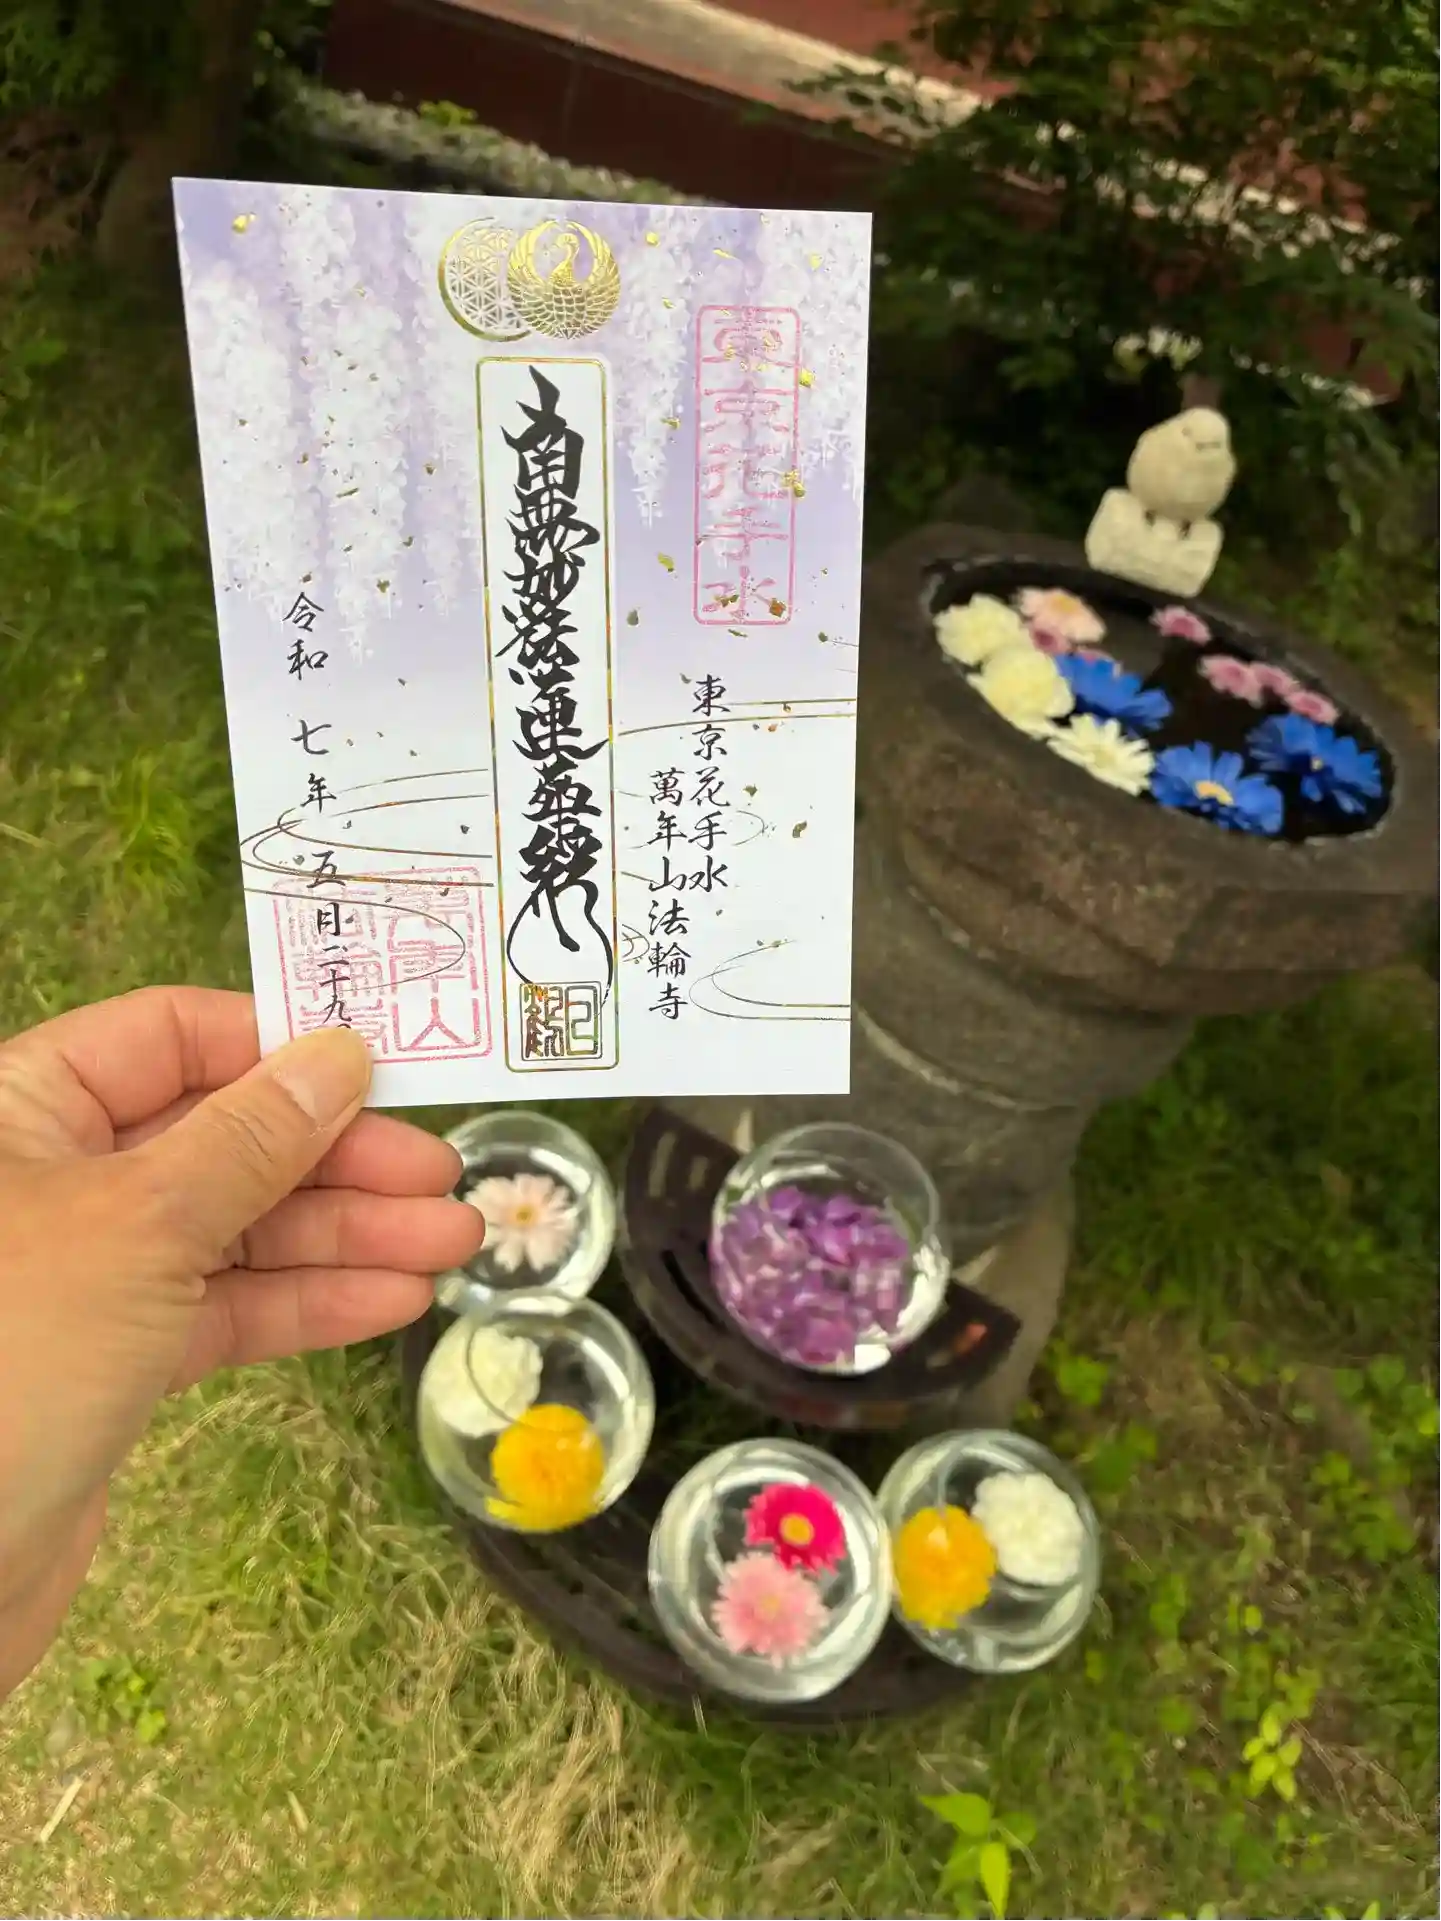 東京花手水
東京花手水
萬年山法輪寺
南無妙法蓮華経
令和七年五月二十九
萬年山
法輪寺